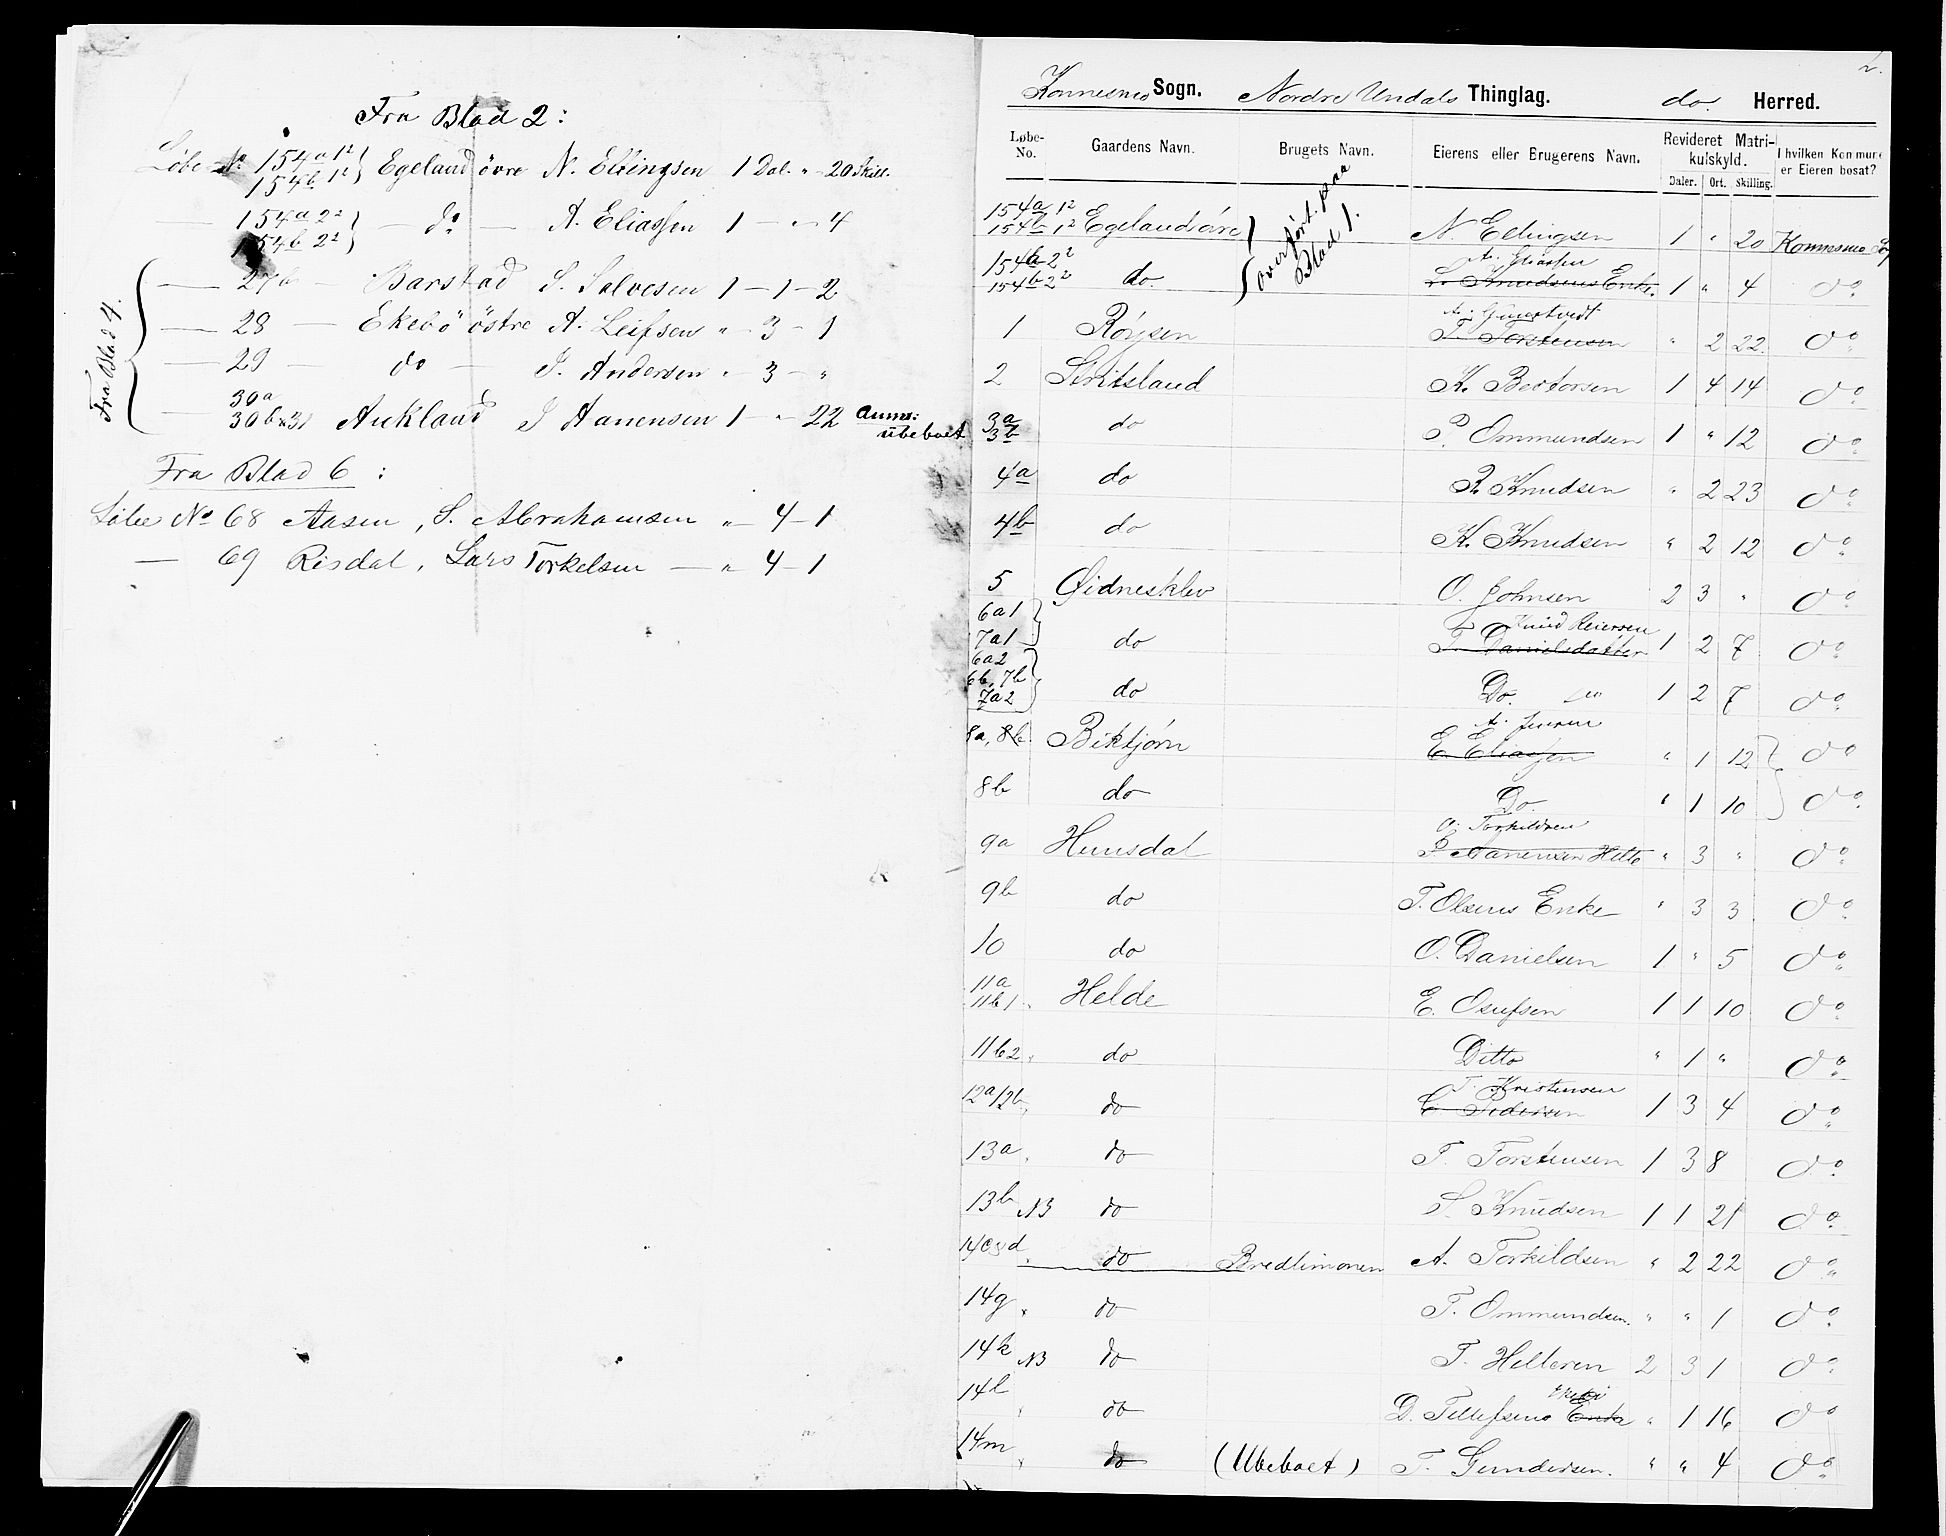 Fra Blad 2:
Løbe No 154a 1² } Egeland övre N. Ellingsen 1 Dal. " 20 Skill.
154b 1²
— 154a 2² } — do — A. Eliassen 1 — " 4
154b 2²
Fra Blad 4.
— 27b — Barstad S. Salvesen 1 — 1 — 2
— 28 — Ekebö östre A. Leifsen " 3 — 1
— 29 — do — J. Andersen " 3 — "
30a
— 30b & 31 Aukland J Aanensen 1 — " 22 anm: ubeboet
Fra Blad 6 :
Løbe No 68 Aasen, S. Abrahamsen " 4 — 1
— 69 Risdal, Lars Torkelsen — " 4 — 1
2.
Konnesmo Sogn. Nordre Undals Thinglag. do Herred.
Løbe-No. Gaardens Navn. Brugets Navn. Eierens eller Brugerens Navn. Revideret Matrikulskyld. I hvilken Kommune er Eieren bosat?
Daler. Ort. Skilling.
overført paa Blad 1.
154a 1²
154b 1² Egeland övre N. Ellingsen 1 " 20 Konnesmo Sogn
154a 2² A. Eliassen
154b 2² do L. Knudsens Enke 1 " 4 do
1 Röysen T. Torstensen " 2 22 do
2 Skritsland K. Berdorsen 1 4 14 do
3a
3b do P. Ommundsen 1 " 12 do
4a do R. Knudsen " 2 23 do
4b do K. Knudsen " 2 12 do
5 Øidnesklev O. Johnsen 2 3 " do
6a1 Knud Reiersen
7a1 do T. Danielsdatter 1 2 7 do
6a2
6b, 7b
7a2 do Do. 1 2 7 do
A. Jensen
8a, 8b Biktjørn E. Eliassen " 1 12 do
8b do Do. " 1 10 do
O. Torkildsen
9a Hunsdal P. Aanensen Helle " 3 " do
9b do T. Olsens Enke " 3 3 do
10 do O. Danielsen 1 " 5 do
11a
11b1 Helde E. Osufsen 1 1 10 do
11b2 do Ditto " 1 " do
T. Kristensen
12a 12b do C. Pedersen 1 3 4 do
13a do T. Torstensen 1 3 8 do
13b NB do S. Knudsen 1 1 21 do
14c&d do Bredlimonen A. Torkildsen " 2 22 do
14g do T. Ommundsen. " " 1 do
14k NB do T. Helleren 2 3 1 do
14l do D. Tellefsens Enke " 1 16 do
14m do (Ubeboet) T. Gundersen. " " 4 do